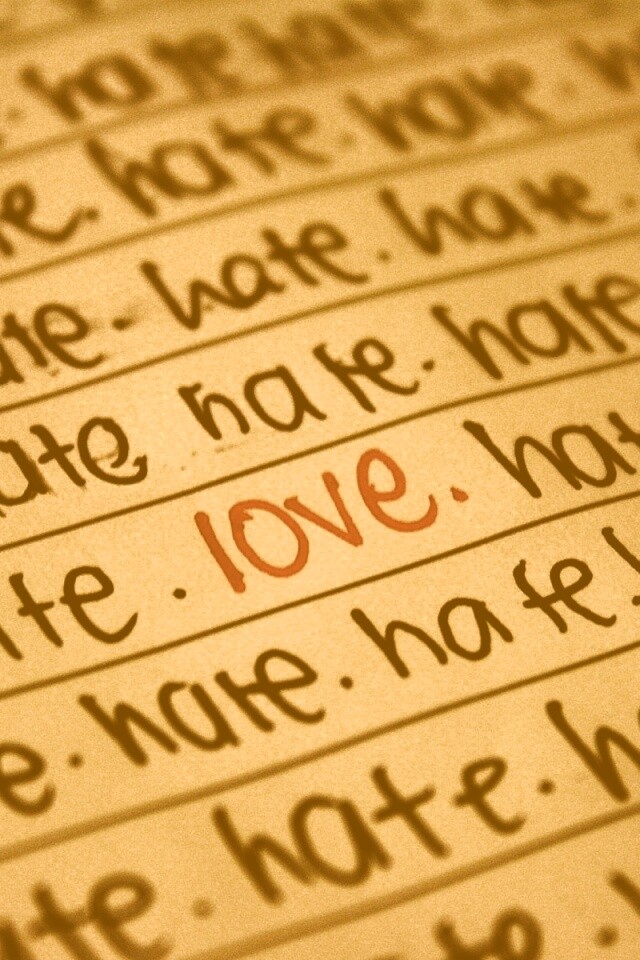 hate hate
e. hate. hate.
ate. hate. hate.
ate hate. hate
te . love. hat
e. hate. hate.
ate . hate. h